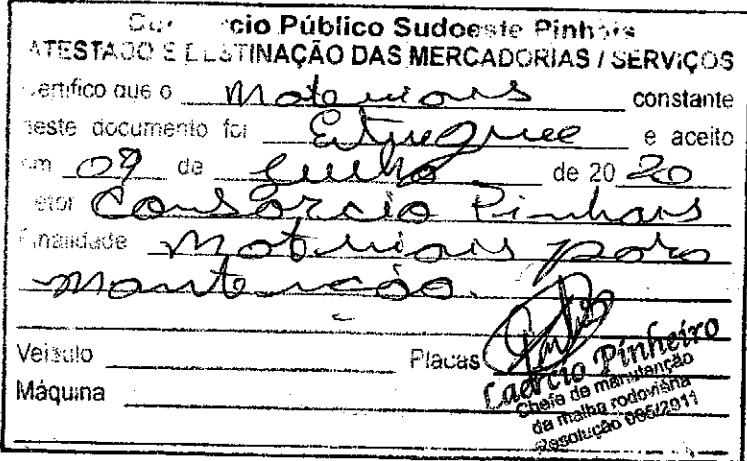 cio Público Sudoeste Pinhais
ATESTADO E DESTINAÇÃO DAS MERCADORIAS / SERVIÇOS
Certifico que o Materiais constante
neste documento foi Entregue e aceito
em 09 de Julho de 20 20
Setor Consórcio Pinhais
Finalidade Materiais para
Mantencão.
Veículo Placas
Máquina
Laercio Pinheiro
Chefe de manutenção
da malha rodoviária
Resolução 095/2011